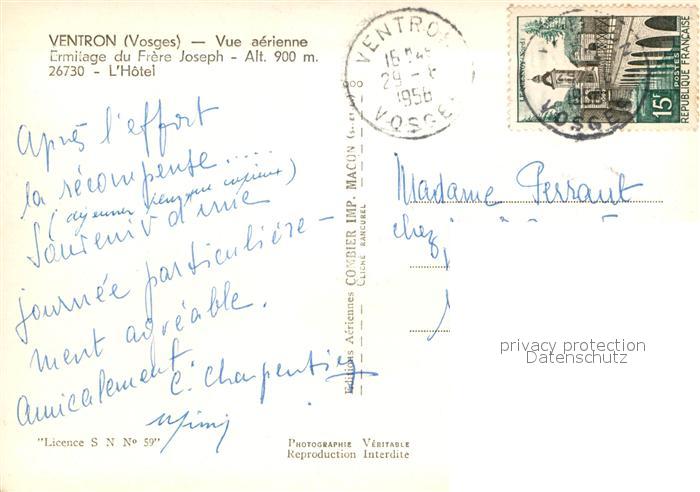 VENTRON (Vosges) — Vue aérienne
Ermitage du Frère Joseph - Alt. 900 m.
26730 - L'Hôtel
Après l'effort
la récompense.....
(déjeuner
Souvenir d'une
journée particulière-
ment agréable.
Amicalement
C. Charpentier
Mimi
"Licence S N N° 59"
Editions Aériennes COMBIER IMP. MACON
CLICHÉ RANCUREL
PHOTOGRAPHIE VÉRITABLE
Reproduction Interdite
VENTRON
29
1956
VOSGES
15F
POSTES
REPUBLIQUE FRANÇAISE
VOSGES
Madame Perraut
chez
privacy protection
Datenschutz